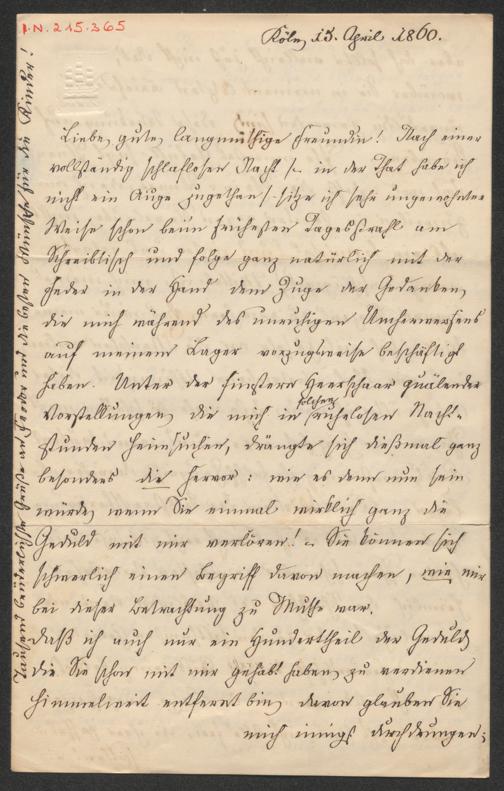 I.N. 215.365
Köln, 15. April 1860.
Liebe, gute, langmüthige Freundin! Nach einer
vollständig schlaflosen Nacht /– in der That habe ich
nicht ein Auge zugethan/ sitze ich sehr ungewohnter
Weise schon beim frühesten Tagesstrahl am
Schreibtisch und folge ganz natürlich mit der
Feder in der Hand dem Zuge der Gedanken,
die mich während des unruhigen Umherwerfens
auf meinem Lager vorzugsweise beschäftigt
haben. Unter der finstern Heerschaar quälender
Vorstellungen, die mich in solchen ruhelosen Nacht-
stunden heimsuchen, drängte sich dießmal ganz
besonders die hervor: wie es denn nun sein
würde, wenn Sie einmal wirklich ganz die
Geduld mit mir verlören! – Sie können sich
schwerlich einen Begriff davon machen, wie mir
bei dieser Betrachtung zu Muthe war.
Daß ich auch nur ein Hunderttheil der Geduld,
die Sie schon mit mir gehabt haben, zu verdienen
himmelweit entfernt bin, davon glauben Sie
mich innigst durchdrungen;
Tausend brüderlichste Grüße an George und die besten Wünsche für die Kinder!